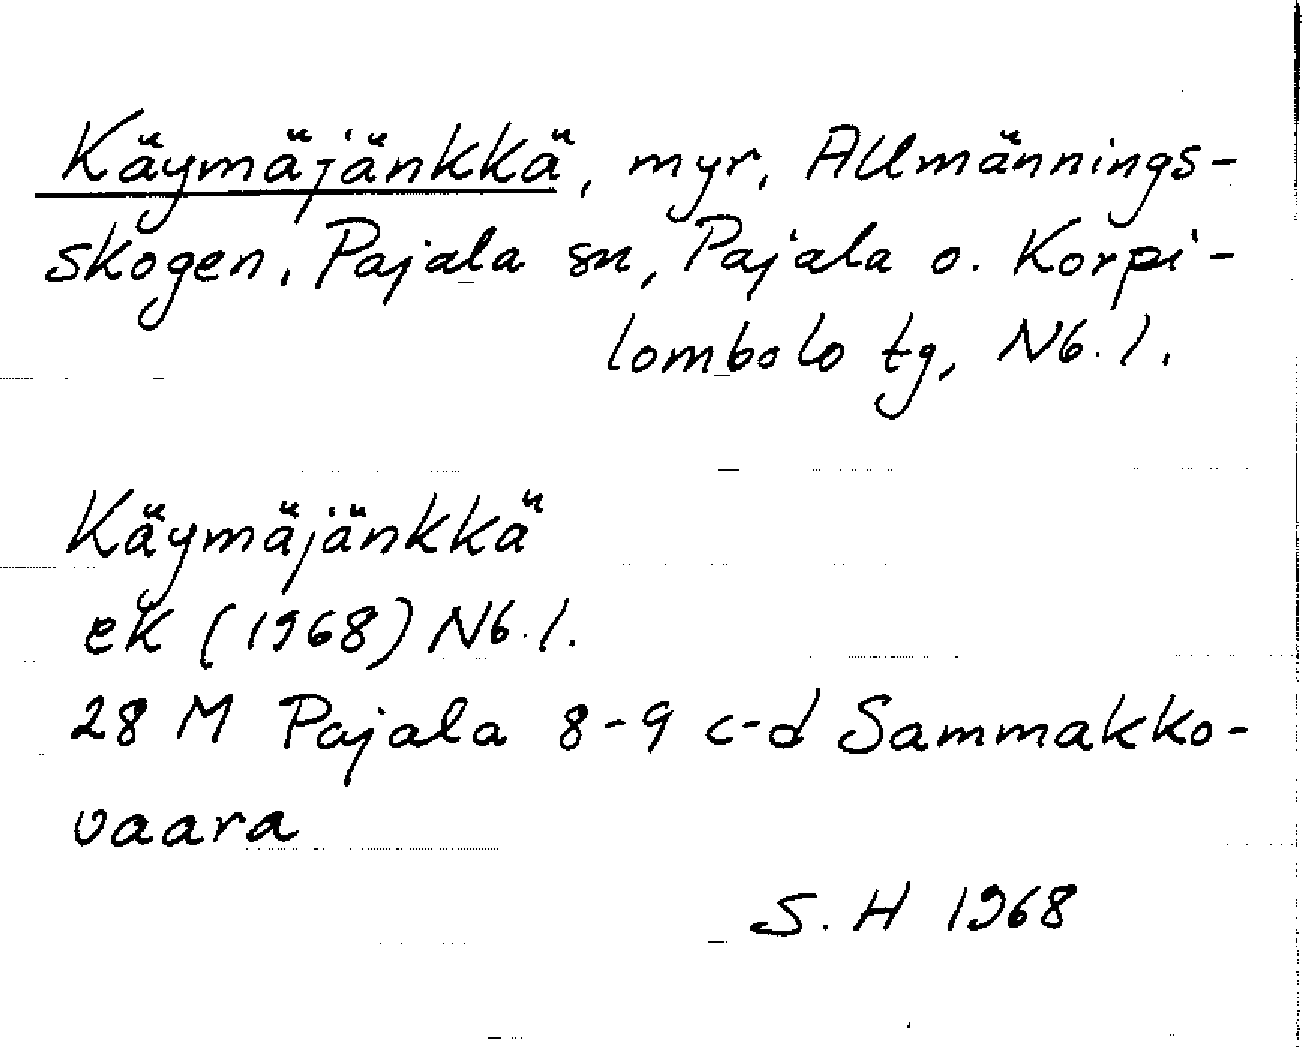 Käymäjänkkä, myr, Allmännings-
skogen, Pajala sn, Pajala o. Korpi-
lombolo tg, Nb. l.
Käymäjänkkä
ek (1968) Nb. l.
28 M Pajala 8-9 c-d Sammakko-
vaara
S. H 1968